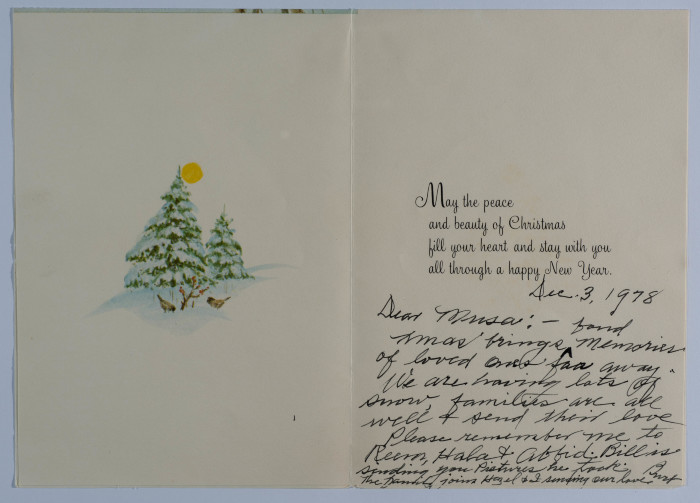 May the peace
and beauty of Christmas
fill your heart and stay with you
all through a happy New Year.
Dec. 3, 1978
Dear Musa: – fond
Xmas brings Memories
of loved ones far away.
We are having lots of
snow, families are all
well & send their love
Please remember me to
Reem, Hala & Abfid. Bill is
sending you Pictures he took.
The Family joins Hazel & I sending our love